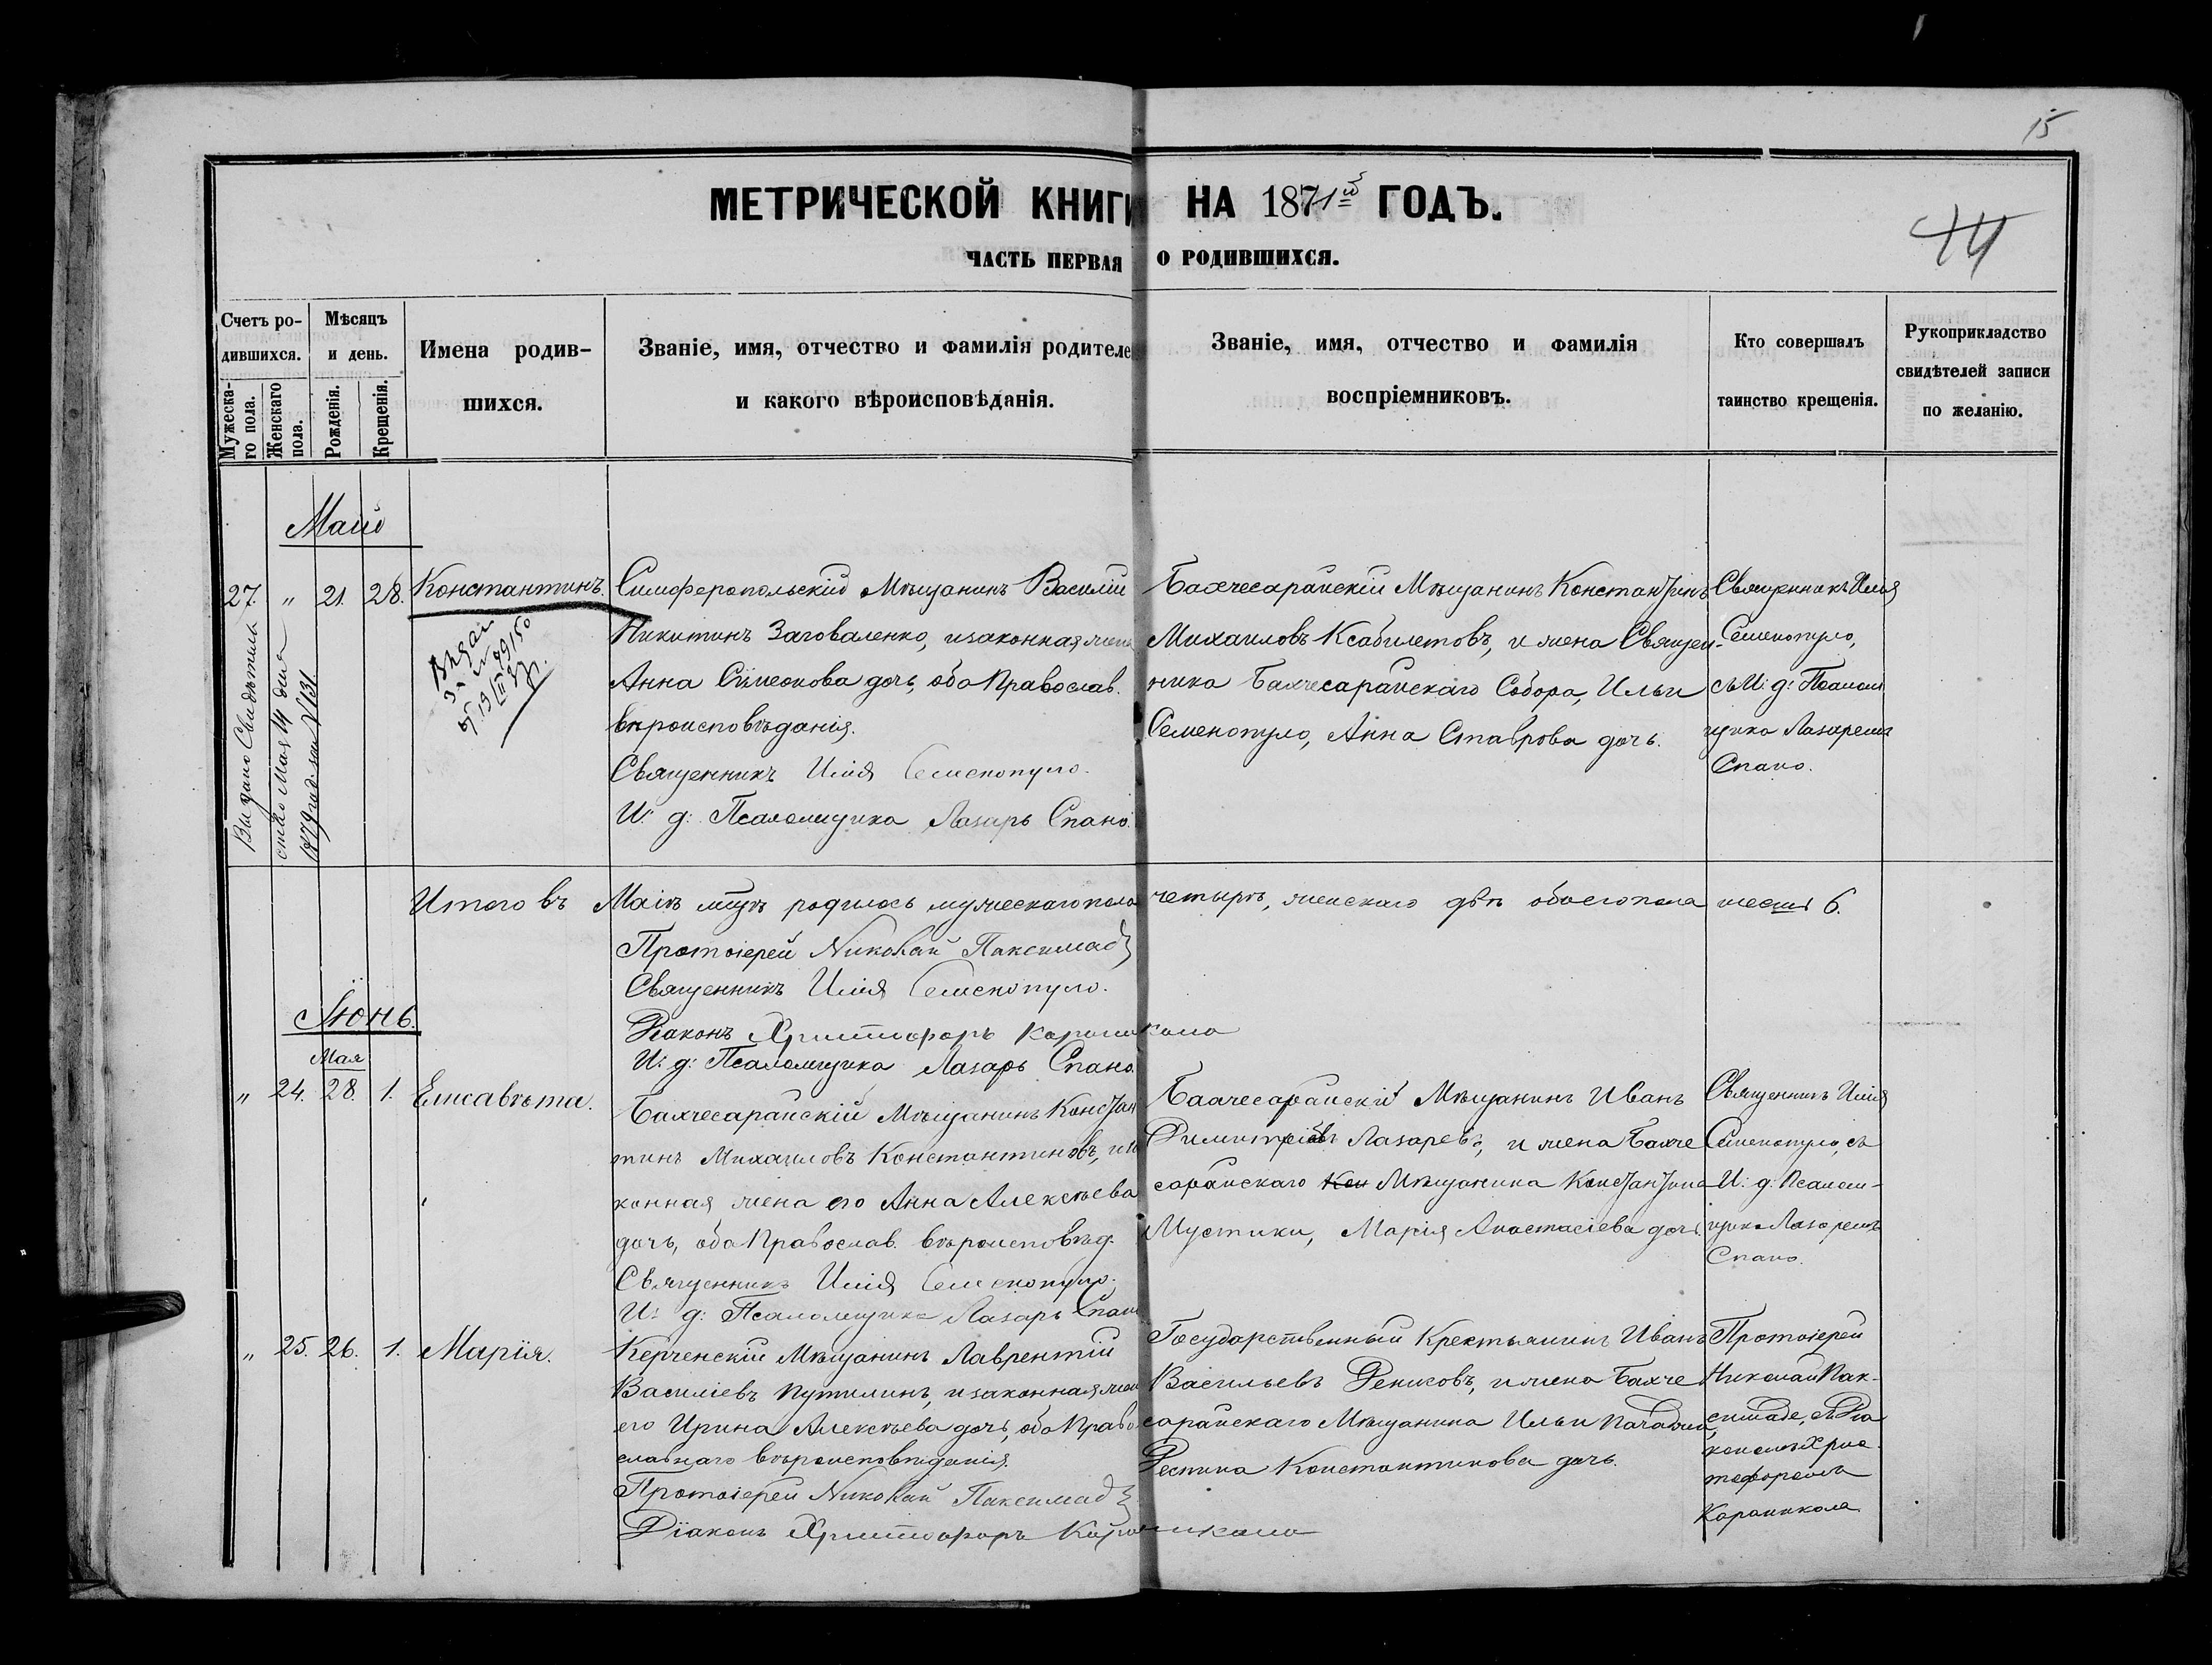 15
МЕТРИЧЕСКОЙ КНИГИ НА 1871й ГОДЪ.
44
ЧАСТЬ ПЕРВАЯ О РОДИВШИХСЯ.
Счетъ ро-
дившихся.
Мужеска-
го пола.
Женскаго
пола.
Мѣсяцъ
и день.
Рожденія.
Крещенія.
Имена родив-
шихся.
Званіе, имя, отчество и фамилія родителе
и какого вѣроисповѣданія.
Званіе, имя, отчество и фамилія
воспріемниковъ.
Кто совершалъ
таинство крещенія.
Рукоприкладство
свидѣтелей записи
по желанію.
Май
27. " 21. 28. Константинъ.
Выдано Свидѣтель
ство Мая 14 дня
1879 год. за № 131
Симферопольскій Мѣщанинъ Василій
Никитинъ Заговаленко, и законная жена
Анна Сімеонова дочь, оба Православ.
вѣроисповѣданія.
Священникъ Илія Семенопуло.
И: д: Псаломщика Лазарь Спано.
Бахчесарайскій Мѣщанинъ Константинъ
Михаиловъ Ксабилетовъ, и жена Священ-
ника Бахчесарайскаго Собора, Ильи
Семенопуло, Анна Ставрова дочь.
Священникъ Илія
Семенопуло,
съ И: д: Псалом
щика Лазаремъ
Спано.
Итого въ Маіѣ мцѣ родилось мужескаго пола четырѣ, женскаго двѣ обоего пола шесть 6.
Протоіерей Николай Паксимад
Священникъ Илія Семенопуло.
Діаконъ Христофоръ Караникола
И: д: Псаломщика Лазарь Спано.
Іюнь.
Мая
" 24. 28. 1. Елисавѣта.
Бахчесарайскій Мѣщанинъ Констан
тинъ Михаиловъ Константиновъ, и за
конная жена его Анна Алексѣева
дочь, оба Православ. вѣроисповѣд.
Священникъ Илія Семенопуло.
И: д: Псаломщика Лазарь Спано
Бахчесарайскій Мѣщанинъ Иванъ
Димитріевъ Лазаревъ, и жена Бахче
сарайскаго Мѣщанина Константина
Мустики, Марія Анастасіева дочь.
Священникъ Илія
Семенопуло, съ
И: д: Псалом-
щика Лазаремъ
Спано.
" 25. 26. 1. Марія.
Керченскій Мѣщанинъ Лаврентій
Василіевъ Путилинъ, и законная жена
его Ирина Алексѣева дочь, оба Право
славнаго вѣроисповѣданія.
Протоіерей Николай Паксимад
Діаконъ Христофоръ Караникола
Государственный Крестьянинъ Иванъ
Васильевъ Денисовъ, и жена Бахче
сарайскаго Мѣщанина Ильи
Деспина Константинова дочь.
Протоіерей
Николай Пак-
симаде, съ Діа
кономъ Хрис
тофоромъ
Караникола